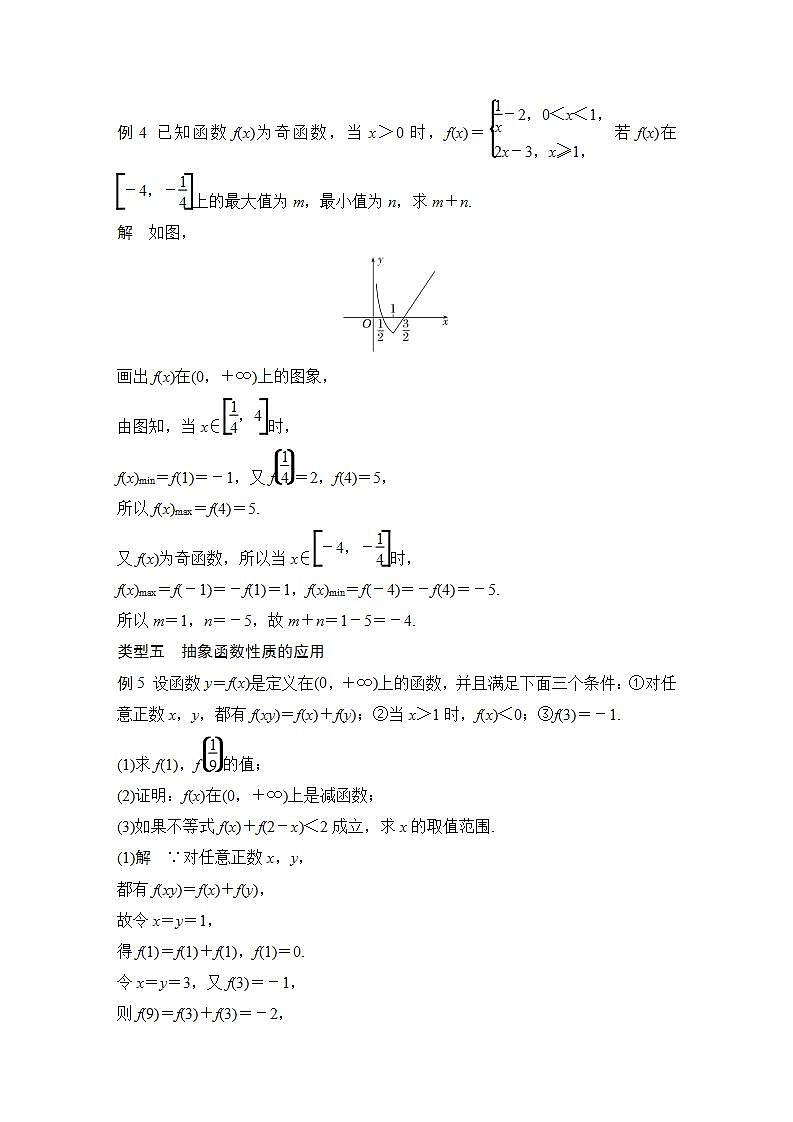 例 4 已知函数 f(x)为奇函数，当 x＞0 时，f(x)＝{1/x－2，0＜x＜1，2x－3，x≥1， 若 f(x)在
[－4，－1/4]上的最大值为 m，最小值为 n，求 m＋n.
解 如图，
y
1
O 1/2 3/2 x
画出 f(x)在(0，＋∞)上的图象，
由图知，当 x∈[1/4，4]时，
f(x)min＝f(1)＝－1，又 f(1/4)＝2，f(4)＝5，
所以 f(x)max＝f(4)＝5.
又 f(x)为奇函数，所以当 x∈[－4，－1/4]时，
f(x)max＝f(－1)＝－f(1)＝1，f(x)min＝f(－4)＝－f(4)＝－5.
所以 m＝1，n＝－5，故 m＋n＝1－5＝－4.
类型五 抽象函数性质的应用
例 5 设函数 y＝f(x)是定义在(0，＋∞)上的函数，并且满足下面三个条件：①对任
意正数 x，y，都有 f(xy)＝f(x)＋f(y)；②当 x＞1 时，f(x)＜0；③f(3)＝－1.
(1)求 f(1)，f(1/9)的值；
(2)证明：f(x)在(0，＋∞)上是减函数；
(3)如果不等式 f(x)＋f(2－x)＜2 成立，求 x 的取值范围.
(1)解 ∵对任意正数 x，y，
都有 f(xy)＝f(x)＋f(y)，
故令 x＝y＝1，
得 f(1)＝f(1)＋f(1)，f(1)＝0.
令 x＝y＝3，又 f(3)＝－1，
则 f(9)＝f(3)＋f(3)＝－2，